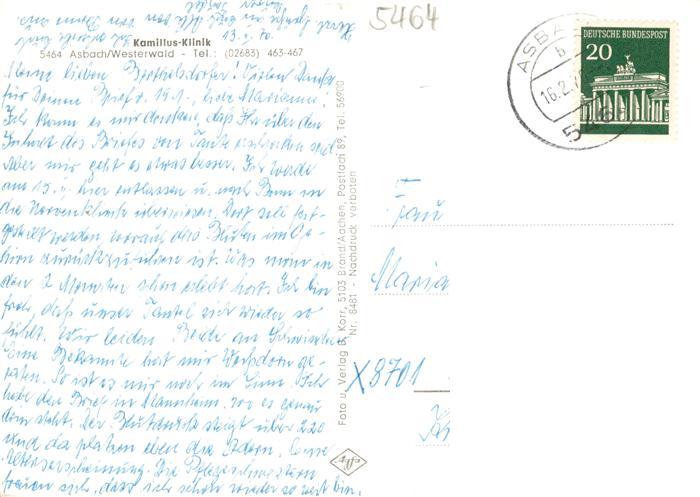 13.2.70.
5464
Kamillus-Klinik
5464 Asbach/Westerwald - Tel.: (02683) 463-467
Meine lieben Bertelsdorfer! Vielen Dank
für Deinen Brief v. 19.1., liebe Marianne!
Ich kann es mir denken, daß Ihr über den
Inhalt des Briefes von Tante erschrocken seid.
Aber mir geht es etwas besser. Ich werde
am 19. hier entlassen u. nach Bonn in
die Nervenklinik überwiesen. Dort soll fest-
gestellt werden, worauf das Bluten im Ge-
hirn zurückzuführen ist. Was man in
den 2 Monaten alles erlebt hat. Ich bin
froh, daß unser Tantel sich wieder so
fühlt. Wir leiden Beide an Schwindel.
Eine Bekannte hat mir Weißdorn ge-
raten. So ist es mir noch im Sinn. Ich
habe den Brief in Mannheim, wo es genau
drin steht. Der Blutdruck steigt über 220
und da platzen eben die Adern. Eine
Alterserscheinung. Die Pflegeschwestern
freuen sich, dass ich schon wieder so weit bin.
Foto u. Verlag B. Korr, 5103 Brand/Aachen, Postfach 89, Tel. 56900
Nr. 8481 - Nachdruck verboten
Agfa
ASBA
b
16.2.
546
DEUTSCHE BUNDESPOST
20
Frau
Maria
X8701